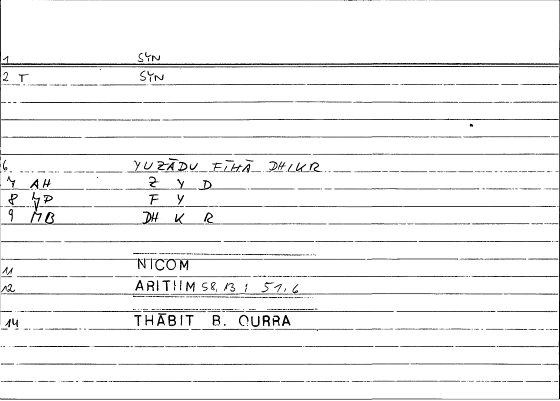 1 SYN
2 T SYN
6 YUZĀDU FĪHĀ DHIKR
7 AH Z Y D
8 F Y
9 MB DH K R
11 NICOM
12 ARITHM 58, 13; 51, 6
14 THĀBIT B. QURRA